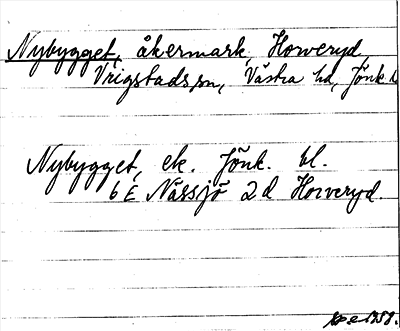 Nybygget, åkermark, Horveryd,
Vrigstads sn, Västra hd, Jönk. l.
Nybygget, ek. Jönk. bl.
6 E Nässjö 2 d Horveryd.
1958.